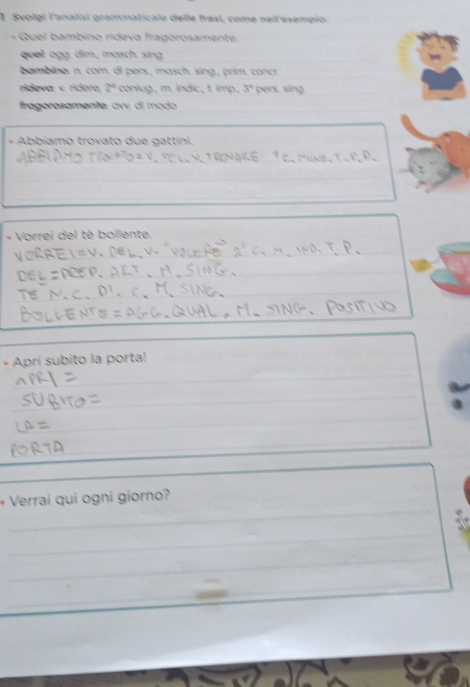 1 Svolgi l'analisi grammaticale delle frasi, come nell'esempio.
• Quel bambino rideva fragorosamente.
quel: agg. dim., masch. sing.
bambino: n. com. di pers., masch. sing., prim. concr.
rideva: v. ridere, 2ª coniug., m. indic., t. imp., 3ª pers. sing.
fragorosamente: avv. di modo
• Abbiamo trovato due gattini.
ABBIAMO TROVATO = V. DEL. V. TROVARE 1ª C. M. IND. T. P. P.
• Vorrei del tè bollente.
VORREI = V. DEL V. "VOLERE" 2ª C. M. IND. T. P.
DEL = PREP. ART. M. SING.
TE N. C. DI. C. M. SING.
BOLLENTE = AGG. QUAL. M. SING. POSITIVO
• Apri subito la porta!
APRI =
SUBITO =
LA =
PORTA
• Verrai qui ogni giorno?